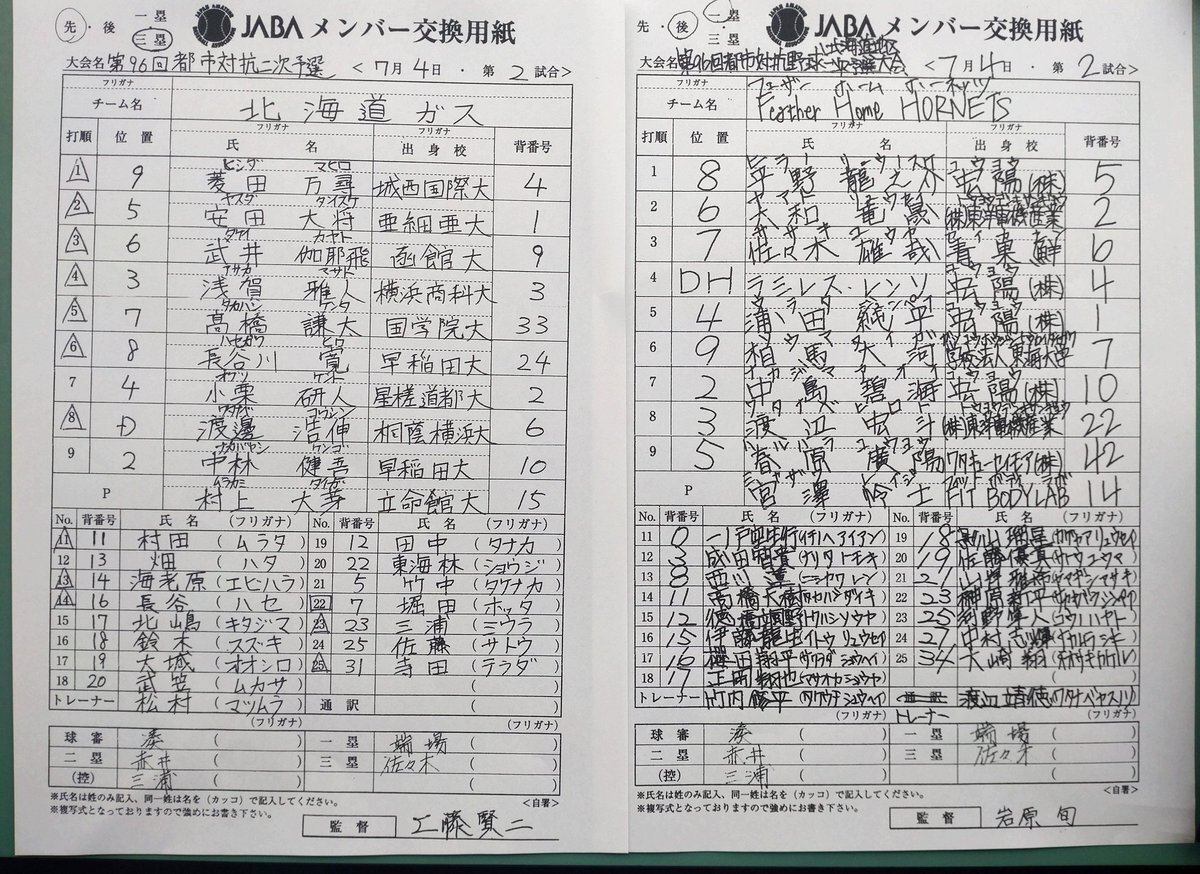 先・後 一塁・三塁 JABA メンバー交換用紙
大会名 第96回都市対抗二次予選 <7月4日・第2試合>
フリガナ
チーム名 北海道ガス
打順 位置 フリガナ 氏名 フリガナ 出身校 背番号
ヒシダ マヒロ
1 9 菱田 万尋 城西国際大 4
ヤスダ タイスケ
2 5 安田 大将 亜細亜大 1
タケイ カヤト
3 6 武井 伽耶飛 函館大 9
アサカ マサト
4 3 浅賀 雅人 横浜商科大 3
タカハシ ケンタ
5 7 髙橋 謙太 国学院大 33
ハセガワ ヒロ
6 8 長谷川 寛 早稲田大 24
オグリ ケント
7 4 小栗 研人 星槎道都大 2
ワタナベ コウシン
8 D 渡邊 浩伸 桐蔭横浜大 6
ナカバヤシ ケンゴ
9 2 中林 健吾 早稲田大 10
ムラカミ タイガ
P 村上 大芽 立命館大 15
No. 背番号 氏名 (フリガナ) No. 背番号 氏名 (フリガナ)
11 11 村田 (ムラタ) 19 12 田中 (タナカ)
12 13 畑 (ハタ) 20 22 東海林 (ショウジ)
13 14 海老原 (エビハラ) 21 5 竹中 (タケナカ)
14 16 長谷 (ハセ) 22 7 堀田 (ホッタ)
15 17 北嶋 (キタジマ) 23 23 三浦 (ミウラ)
16 18 鈴木 (スズキ) 24 25 佐藤 (サトウ)
17 19 大城 (オオシロ) 25 31 寺田 (テラダ)
18 20 武笠 (ムカサ) ( )
トレーナー 松村 (マツムラ) 通訳 ( )
(フリガナ) (フリガナ)
球審 湊 ( ) 一塁 端場 ( )
二塁 赤井 ( ) 三塁 佐々木 ( )
(控) 三浦 ( ) ( )
※氏名は姓のみ記入、同一姓は名を(カッコ)で記入してください。 <自署>
※複写式となっておりますので強めにお書き下さい。
監督 工藤賢二
先・後 一塁・三塁 JABA メンバー交換用紙
大会名 第96回都市対抗野球 大会 <7月4日・第2試合>
フリガナ フェザー ホーム ホーネッツ
チーム名 Feather Home HORNETS
打順 位置 フリガナ 氏名 フリガナ 出身校 背番号
1 8 平野 龍之介 宏陽(株) 5
2 6 大和 (株)東洋電機産業 2
3 7 佐々木 雄哉 青果鮮 6
4 DH ラミレス・レンソ 宏陽(株) 4
5 4 蒲田 純平 宏陽(株) 1
6 9 相馬 大河 7
7 2 中島 碧海 宏陽(株) 10
8 3 渡辺 宏斗 (株)東洋電機産業 22
9 5 春原 廣陽 ワタキューセイモア(株) 42
P 宮澤 怜士 FIT BODYLAB 14
No. 背番号 氏名 (フリガナ) No. 背番号 氏名 (フリガナ)
11 0 一戸 19 18
12 3 成田智貴 (ナリタ トモキ) 20 19 佐藤優真 (サトウユウマ)
13 8 西川蓮 (ニシカワ レン) 21 21 (ヤマザキマサキ)
14 11 高橋大樹 (タカハシダイキ) 22 23 榊原
15 12 徳橋 23 25 河野隼人 (コウノハヤト)
16 15 伊藤龍生 (イトウ リュウセイ) 24 27 中村
17 16 櫻田翔平 (サクラダ ショウヘイ) 25 34 大崎翔 (オオサキカケル)
18 17 正岡翔也 (マサオカショウヤ) ( )
トレーナー 竹内修平 (タケウチショウヘイ) 通訳 渡辺靖徳 (ワタナベヤスノリ)
(フリガナ) トレーナー (フリガナ)
球審 湊 ( ) 一塁 端場 ( )
二塁 赤井 ( ) 三塁 佐々木 ( )
(控) 三浦 ( ) ( )
※氏名は姓のみ記入、同一姓は名を(カッコ)で記入してください。 <自署>
※複写式となっておりますので強めにお書き下さい。
監督 岩原 旬